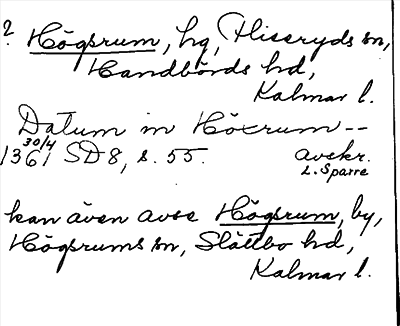 ? Högsrum, hg, Fliseryds sn,
Handbörds hd,
Kalmar l.
Datum in Höxrum --
30/4
1361 SD 8, s. 55. avskr.
L. Sparre
kan även avse Högsrum, by,
Högsrums sn, Slättbo hd,
Kalmar l.